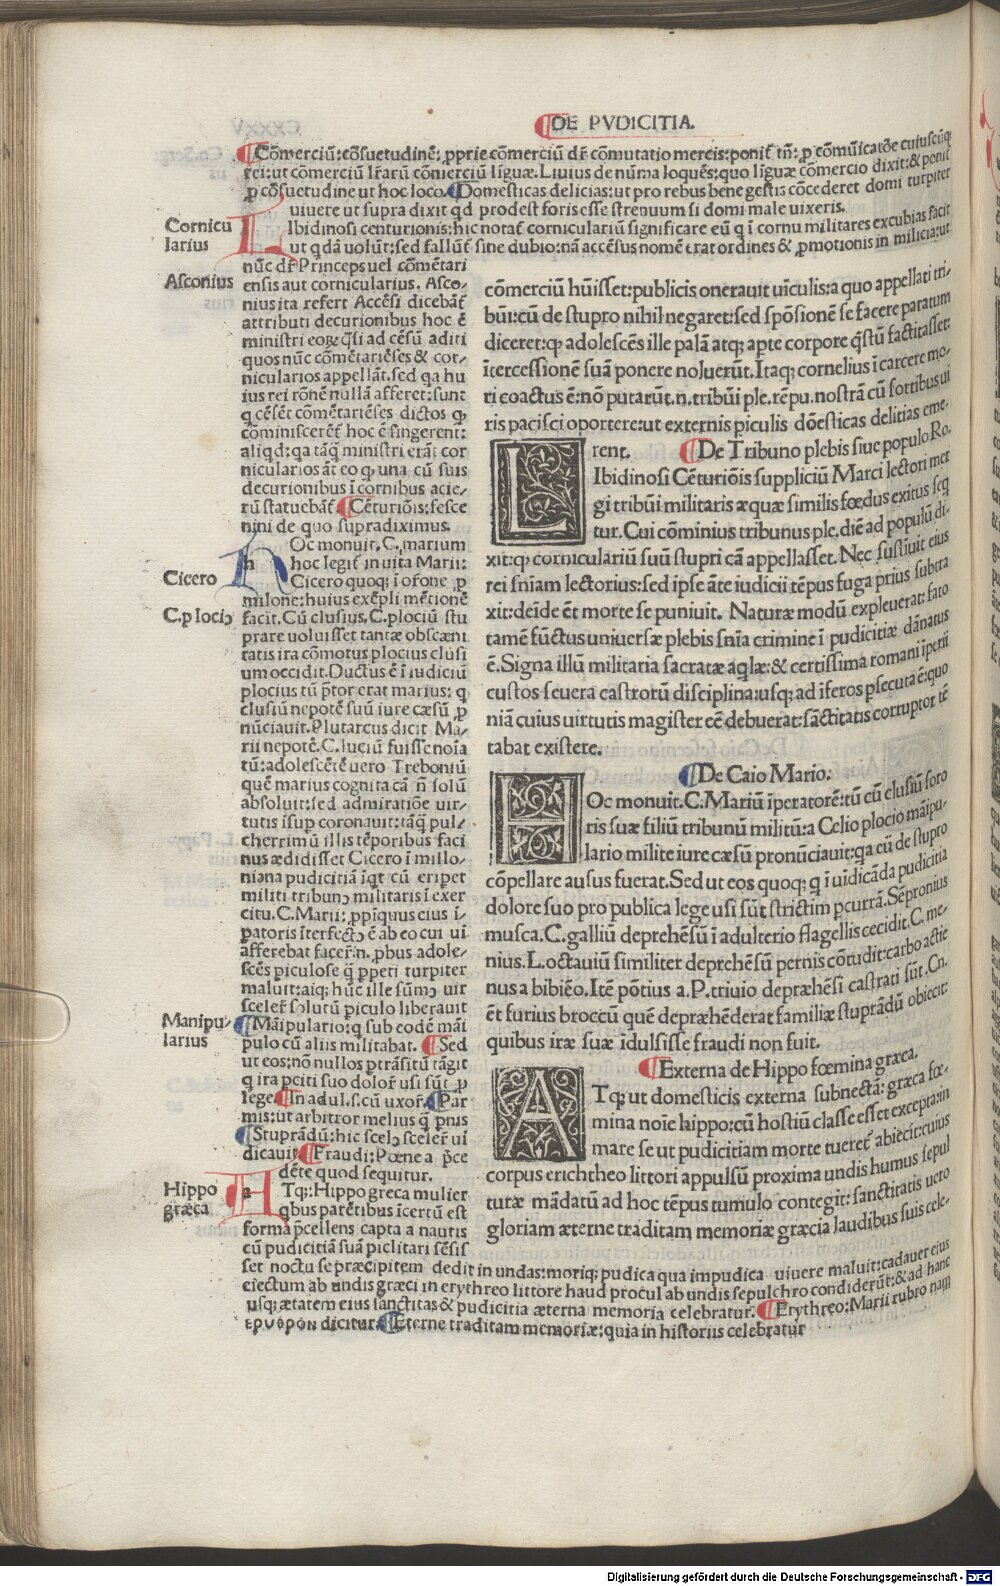 DE PVDICITIA.
Cōmerciū:cōsuetudinē: pprie cōmerciū dr̄ cōmutatio mercis:ponit̄ tn̄: ꝓ cōmūicatōe cuiuscūq
rei:ut cōmerciū lr̄arū cōmerciū līguæ. Liuius de numa loquēs:quo līguæ cōmercio dixit:& ponit̄
ꝓ cōsuetudine ut hoc loco. Domesticas delicias:ut pro rebus bene gestis cōcederet domi turpiter
uiuere ut supra dixit qd prodest foris esse strenuum si domi male uixeris.
Cornicu
larius
LIbidinosi centurionis:hic notat̄ corniculariū significare eū q ī cornu militares excubias facit
ut qdā uolūt:sed fallūt̄ sine dubio:nā accēsus nomē erat ordines & ꝓmotionis in milicia:ut
nūc dr̄ Princeps uel cōmētari
Asconius
ensis aut cornicularius. Asco-
nius ita refert Accēsi dicebāt̄
attributi decurionibus hoc ē
ministri eorꝫ qsi ad cēsū aditi
quos nūc cōmētariēses & cor-
nicularios appellāt.sed qa hu
ius rei rōnē nullā afferet:sunt
q cēsēt cōmētariēses dictos qꝫ
cōminiscerēt̄ hoc ē fingerent:
aliqd:qa tāqꝫ ministri erāt cor
nicularios āt eo qꝫ una cū suis
decurionibus ī cornibus acie-
rū statuebāt̄. Cēturiōis:fesce
nini de quo supradiximus.
hOc monuit. C. marium
hoc legit̄ in uita Marii:
Cicero
Cicero quoqꝫ ī orōne ꝓ
milone:huius exēpli mētionē
C.plociꝰ
facit. Cū clusius. C. plociū stu
prare uoluisset tantæ obscæni
tatis ira cōmotus plocius clusi
um occidit. Ductus ē ī iudiciū
plocius tū p̄tor erat marius: q
clusiū nepotē suū iure cæsū ꝓ
nūciauit. Plutarcus dicit Ma-
rii nepotē. C. luciū fuisse noīa
tū:adolescētē uero Treboniū
quē marius cognita cā n̄ solū
absoluit:sed admiratiōe uir-
tutis īsup coronauit:tāqꝫ pul-
cherrimū illis tēporibus faci
nus ædidisset Cicero ī millo-
niana pudicitiā īqt cū eripet
miti tribunꝰ militaris ī exer
citu. C. Marii: ppīquus eius ī-
patoris īterfectꝰ ē ab eo cui uī
afferebat facer̄.n. pbus adole-
scēs piculose q̄ ppeti turpiter
maluit:atqꝫ hūc ille sūmꝰ uir
sceler̄ solutū piculo liberauit
Manipu-
larius
Māipulario:q sub eodē māi
pulo cū aliis militabat. Sed
ut eos:nō nullos p̄trāsitū tāgit
q ira pciti suo dolor̄ usi sūt ꝓ
lege In adul.s.cū uxor̄. Par
mis:ut arbitror melius q̄ pnis
Stuprādū:hic scelꝰ sceler̄ uī
dicauit Fraudi:Pœne a p̄ce
dēte quod sequitur.
Hippo
græca
aTqꝫ:Hippo greca mulier
qbus parētibus īcertū est
forma p̄cellens capta a nautis
cū pudicitiā suā piclitari sēsis
set noctu se præcipitem dedit in undas:moriqꝫ pudica qua impudica uiuere maluit:cadauer eius
eiectum ab undis græci in erythreo littore haud procul ab undis sepulchro condiderūt:& ad hanc
usqꝫ ætatem eius sanctitas & pudicitia æterna memoria celebratur̄. Erythreo:Marii rubro nam
ερυθρον dicitur. Eterne traditam memoriæ:quia in historiis celebratur
cōmerciū hūisset:publicis onerauit uīculis:a quo appellati tri-
būi:cū de stupro nihil negaret:sed spōsionē se facere paratum
diceret:qꝫ adolescēs ille palā atqꝫ apte corpore q̄stū factitasset:
ītercessionē suā ponere noluerūt.Itaqꝫ cornelius ī carcere mo-
ri coactus ē:nō putarūt.n.tribūi ple.rēpu.nostrā cū fortibus ui
ris pacisci oportere:ut externis piculis dōesticas delitias eme-
rent. De Tribuno plebis siue populo Ro.
LIbidinosi Cēturiōis suppliciū Marci lectori met
gi tribūi militaris æquæ similis fœdus exitus seq
tur. Cui cōminius tribunus ple.diē ad populū di-
xit:qꝫ corniculariū suū stupri cā appellasset. Nec sustīuit eius
rei sn̄iam lectorius:sed ipse āte iudicii tēpus fuga prius subtra
xit:deīde ēt morte se puniuit. Naturæ modū expleuerat:fato
tamē fūctus uniuersæ plebis sn̄ia crimine ī pudicitiæ dānatus
ē.Signa illū militaria sacratæ aqlæ:& certissima romani īperii
custos seuera castrorū disciplina:usqꝫ ad īferos p̄secuta ē:quo
niā cuius uirtutis magister eē debuerat:sāctitatis corruptor tē
tabat existere.
De Caio Mario.
HOc monuit.C.Mariū īperatorē:tū cū clusiū soro
ris suæ filiū tribunū militū:a Celio plocio māipu-
lario milite iure cæsū pronūciauit:qa eū de stupro
cōpellare ausus fuerat.Sed ut eos quoqꝫ q ī uīdicāda pudicitia
dolore suo pro publica lege usi sūt strictim pcurrā.Sēpronius
musca.C.galliū deprehēsū ī adulterio flagellis cecidit.C.me-
nius.L.octauiū similiter deprehēsū pernis cōtudit:carbo actie
nus a bibiēo.Itē pōtius a.P.triuio depræhēsi castrati sūt.Cn.
ēt furius broccū quē depræhēderat familiæ stuprādū obiecit:
quibus iræ suæ īdulsisse fraudi non fuit.
Externa de Hippo fœmina græca.
ATqꝫ ut domesticis externa subnectā: græca fœ-
mina noīe hippo:cū hostiū classe esset excepta:in
mare se ut pudicitiam morte tueret̄ abiecit:cuius
corpus erichtheo littori appulsū proxima undis humus sepul
turæ mādatū ad hoc tēpus tumulo contegit:sāctitatis uero
gloriam æterne traditam memoriæ græcia laudibus suis cele-
Digitalisierung gefördert durch die Deutsche Forschungsgemeinschaft - DFG